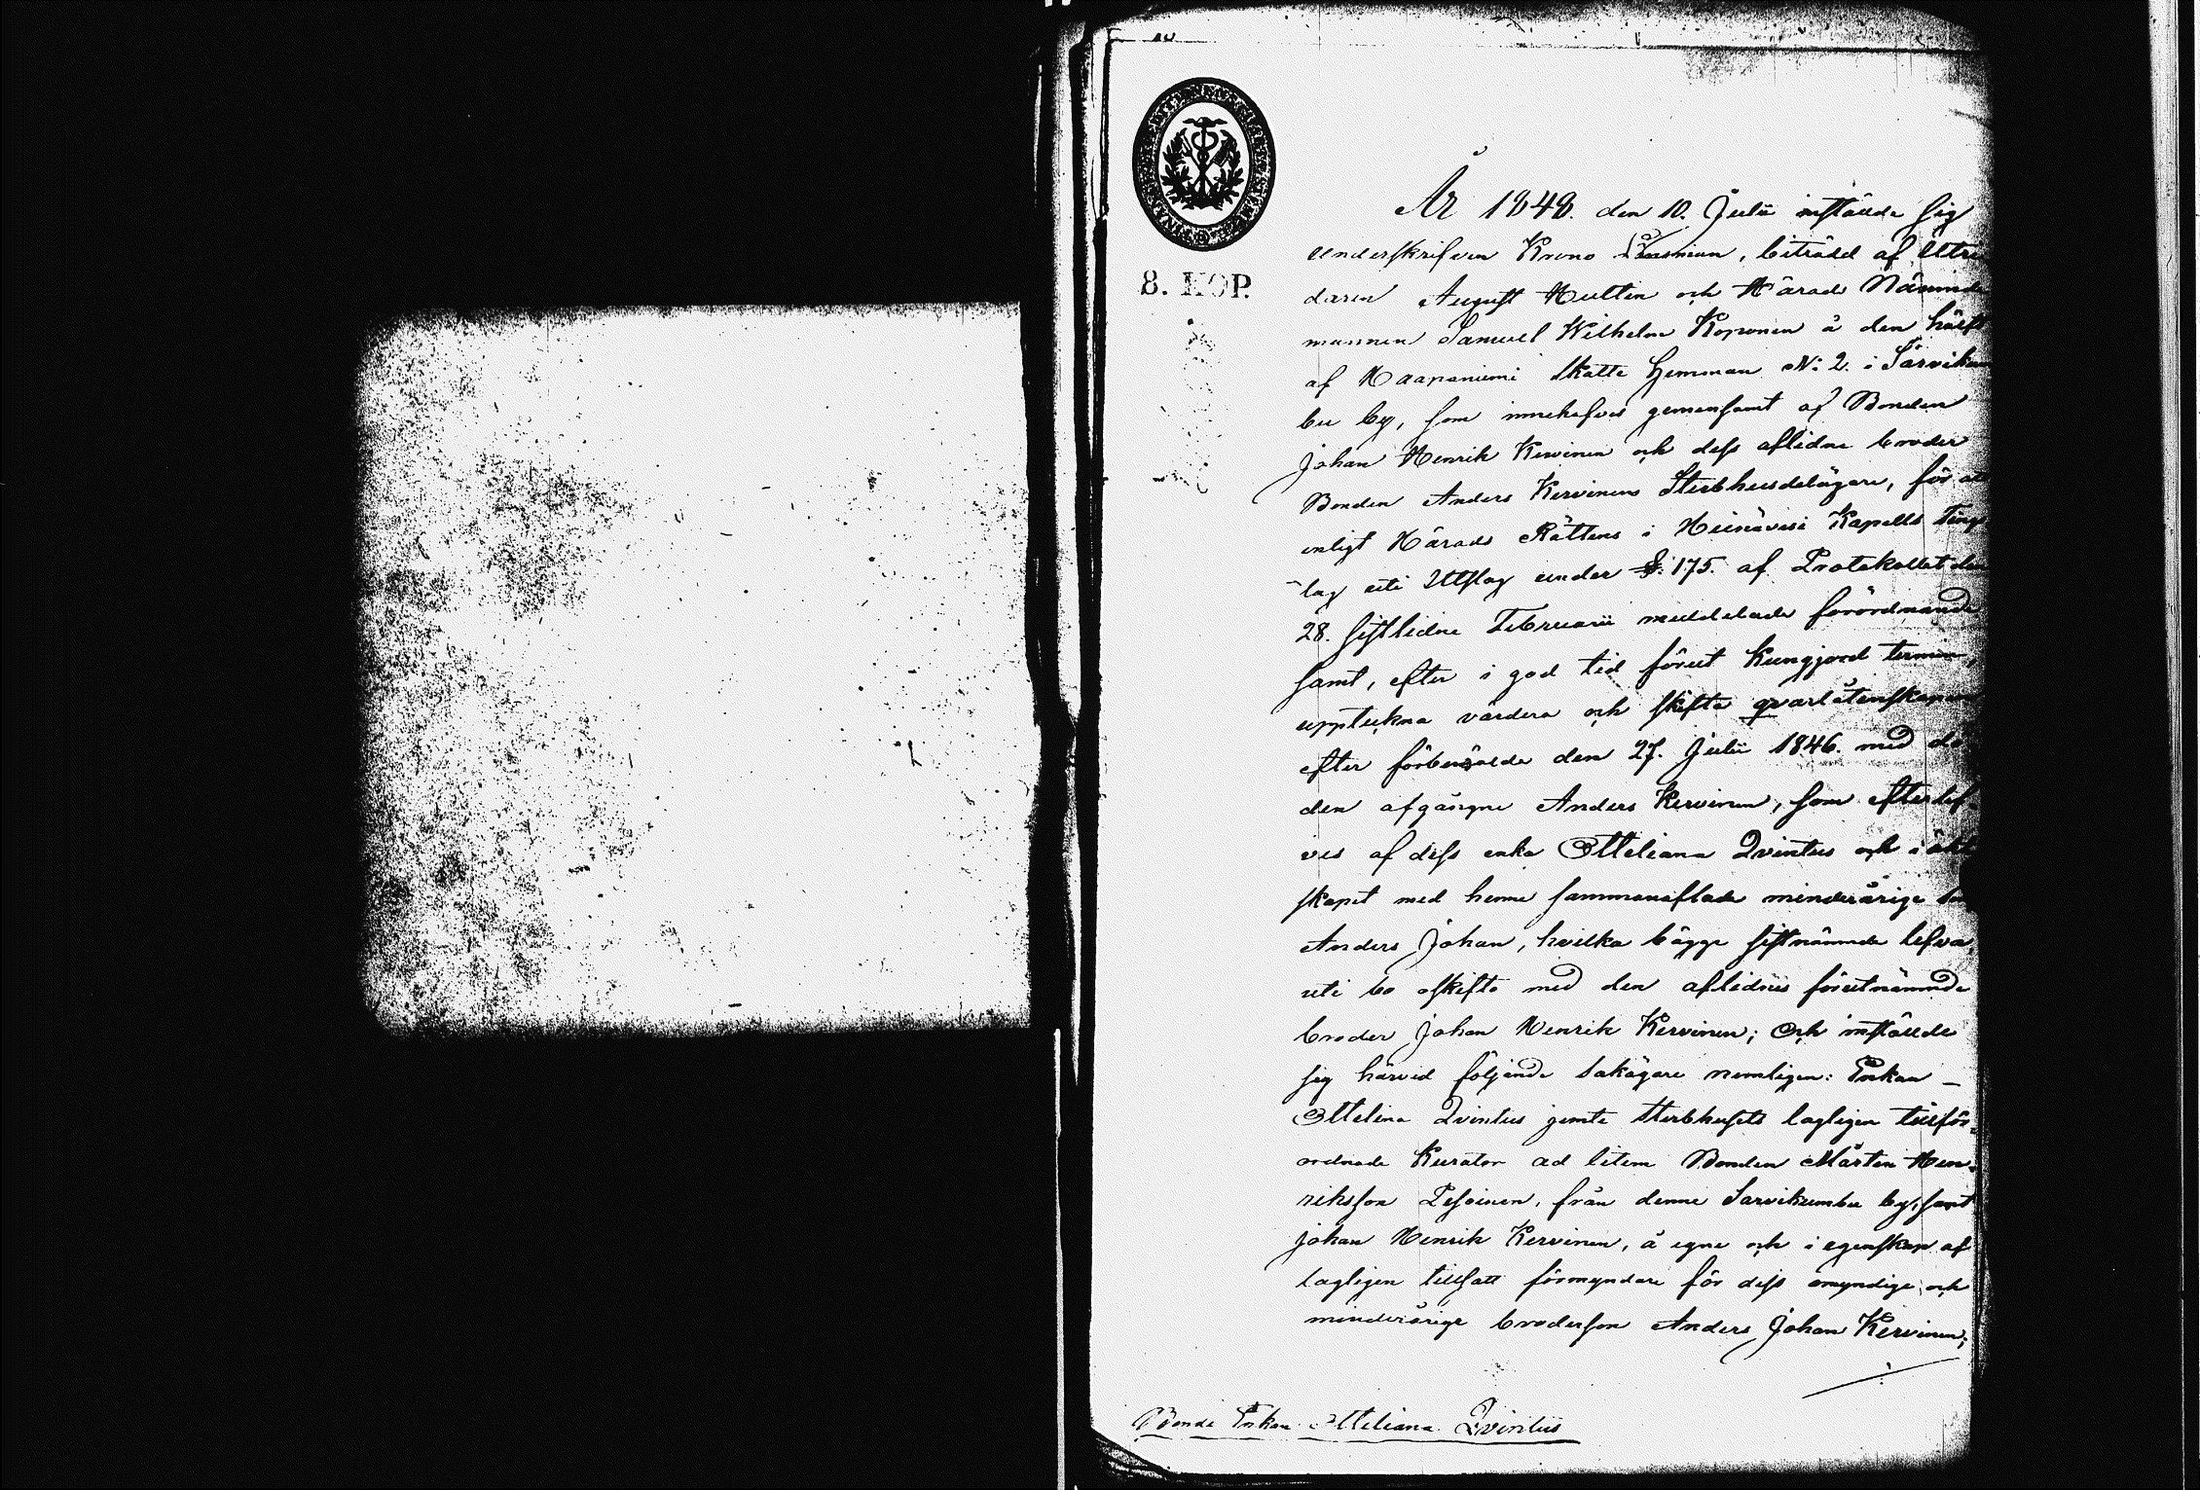 8. KOP.
År 1848. den 10. Julii instälde sig
underskrifven Krono Länsman, biträdd af Utri
daren August Hultin och Härads Nämnde
mannen Samuel Wilhelm Koponen å den hälft
af Haapaniemi Skatte Hemman N: 2. i Sarvikum
bu by, som innehafves gemensamt af Bonden
Johan Henrik Kervinen och dess aflidne broder
Bonden Anders Kervinens Sterbhusdelägare, för at
enligt Härads Rättens i Heinävesi Kapells Tings
lag uti Utslag under §: 175. af Protokollet den
28. sistlidne Februarii meddelade förordnande
samt, efter i god tid förut kungjord termin,
uppteckna värdera och skifta qvarlåtenskapen
efter förbemälde den 27. Julii 1846. med dö
den afgångne Anders Kervinen, som efterlef
ves af dess enka Otteliana Qvintus och i äkt
skapet med henne sammanaflade minderårige son
Anders Johan, hvilka bägge sistnämnde lefva
uti bo oskifto med den aflidnes förutnämnde
broder Johan Henrik Kervinen; Och instälde
sig härvid följande sakägare nemligen: Enkan
Ottelina Qvintus jemte sterbhusets lagligen tillför-
ordnade Kurator ad litem Bonden Mårten Hen-
riksson Pesoinen, från denne Sarvikumbu by, samt
Johan Henrik Kervinen, å egne och i egenskap af
lagligen tillsatt förmyndare för dess omyndige och
minderårige brodersson Anders Johan Kervinen;
Bonde Enkan Otteliana Qvintus